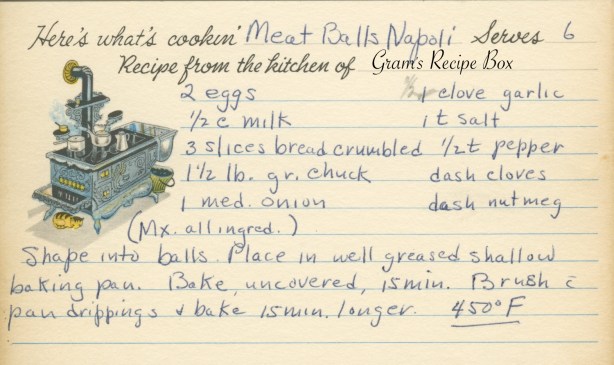 Here's what's cookin' Meat Balls Napoli Serves 6
Recipe from the kitchen of Gram's Recipe Box
2 eggs 1 clove garlic
1/2 c milk 1 t salt
3 slices bread crumbled 1/2 t pepper
1 1/2 lb. gr. chuck dash cloves
1 med. onion dash nutmeg
(Mx. all ingred.)
Shape into balls. Place in well greased shallow
baking pan. Bake, uncovered, 15 min. Brush c̄
pan drippings & bake 15 min. longer. 450° F